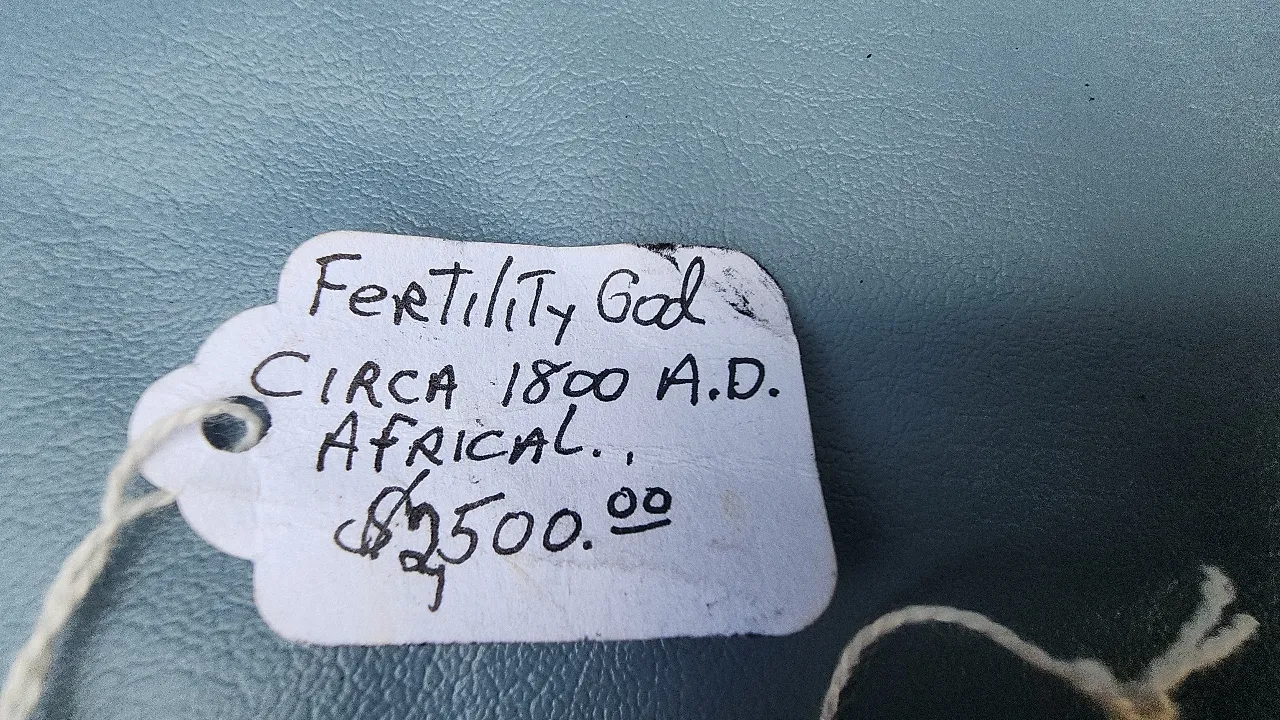 Fertility God
CIRCA 1800 A.D.
AfRICAL..
$2,500.00